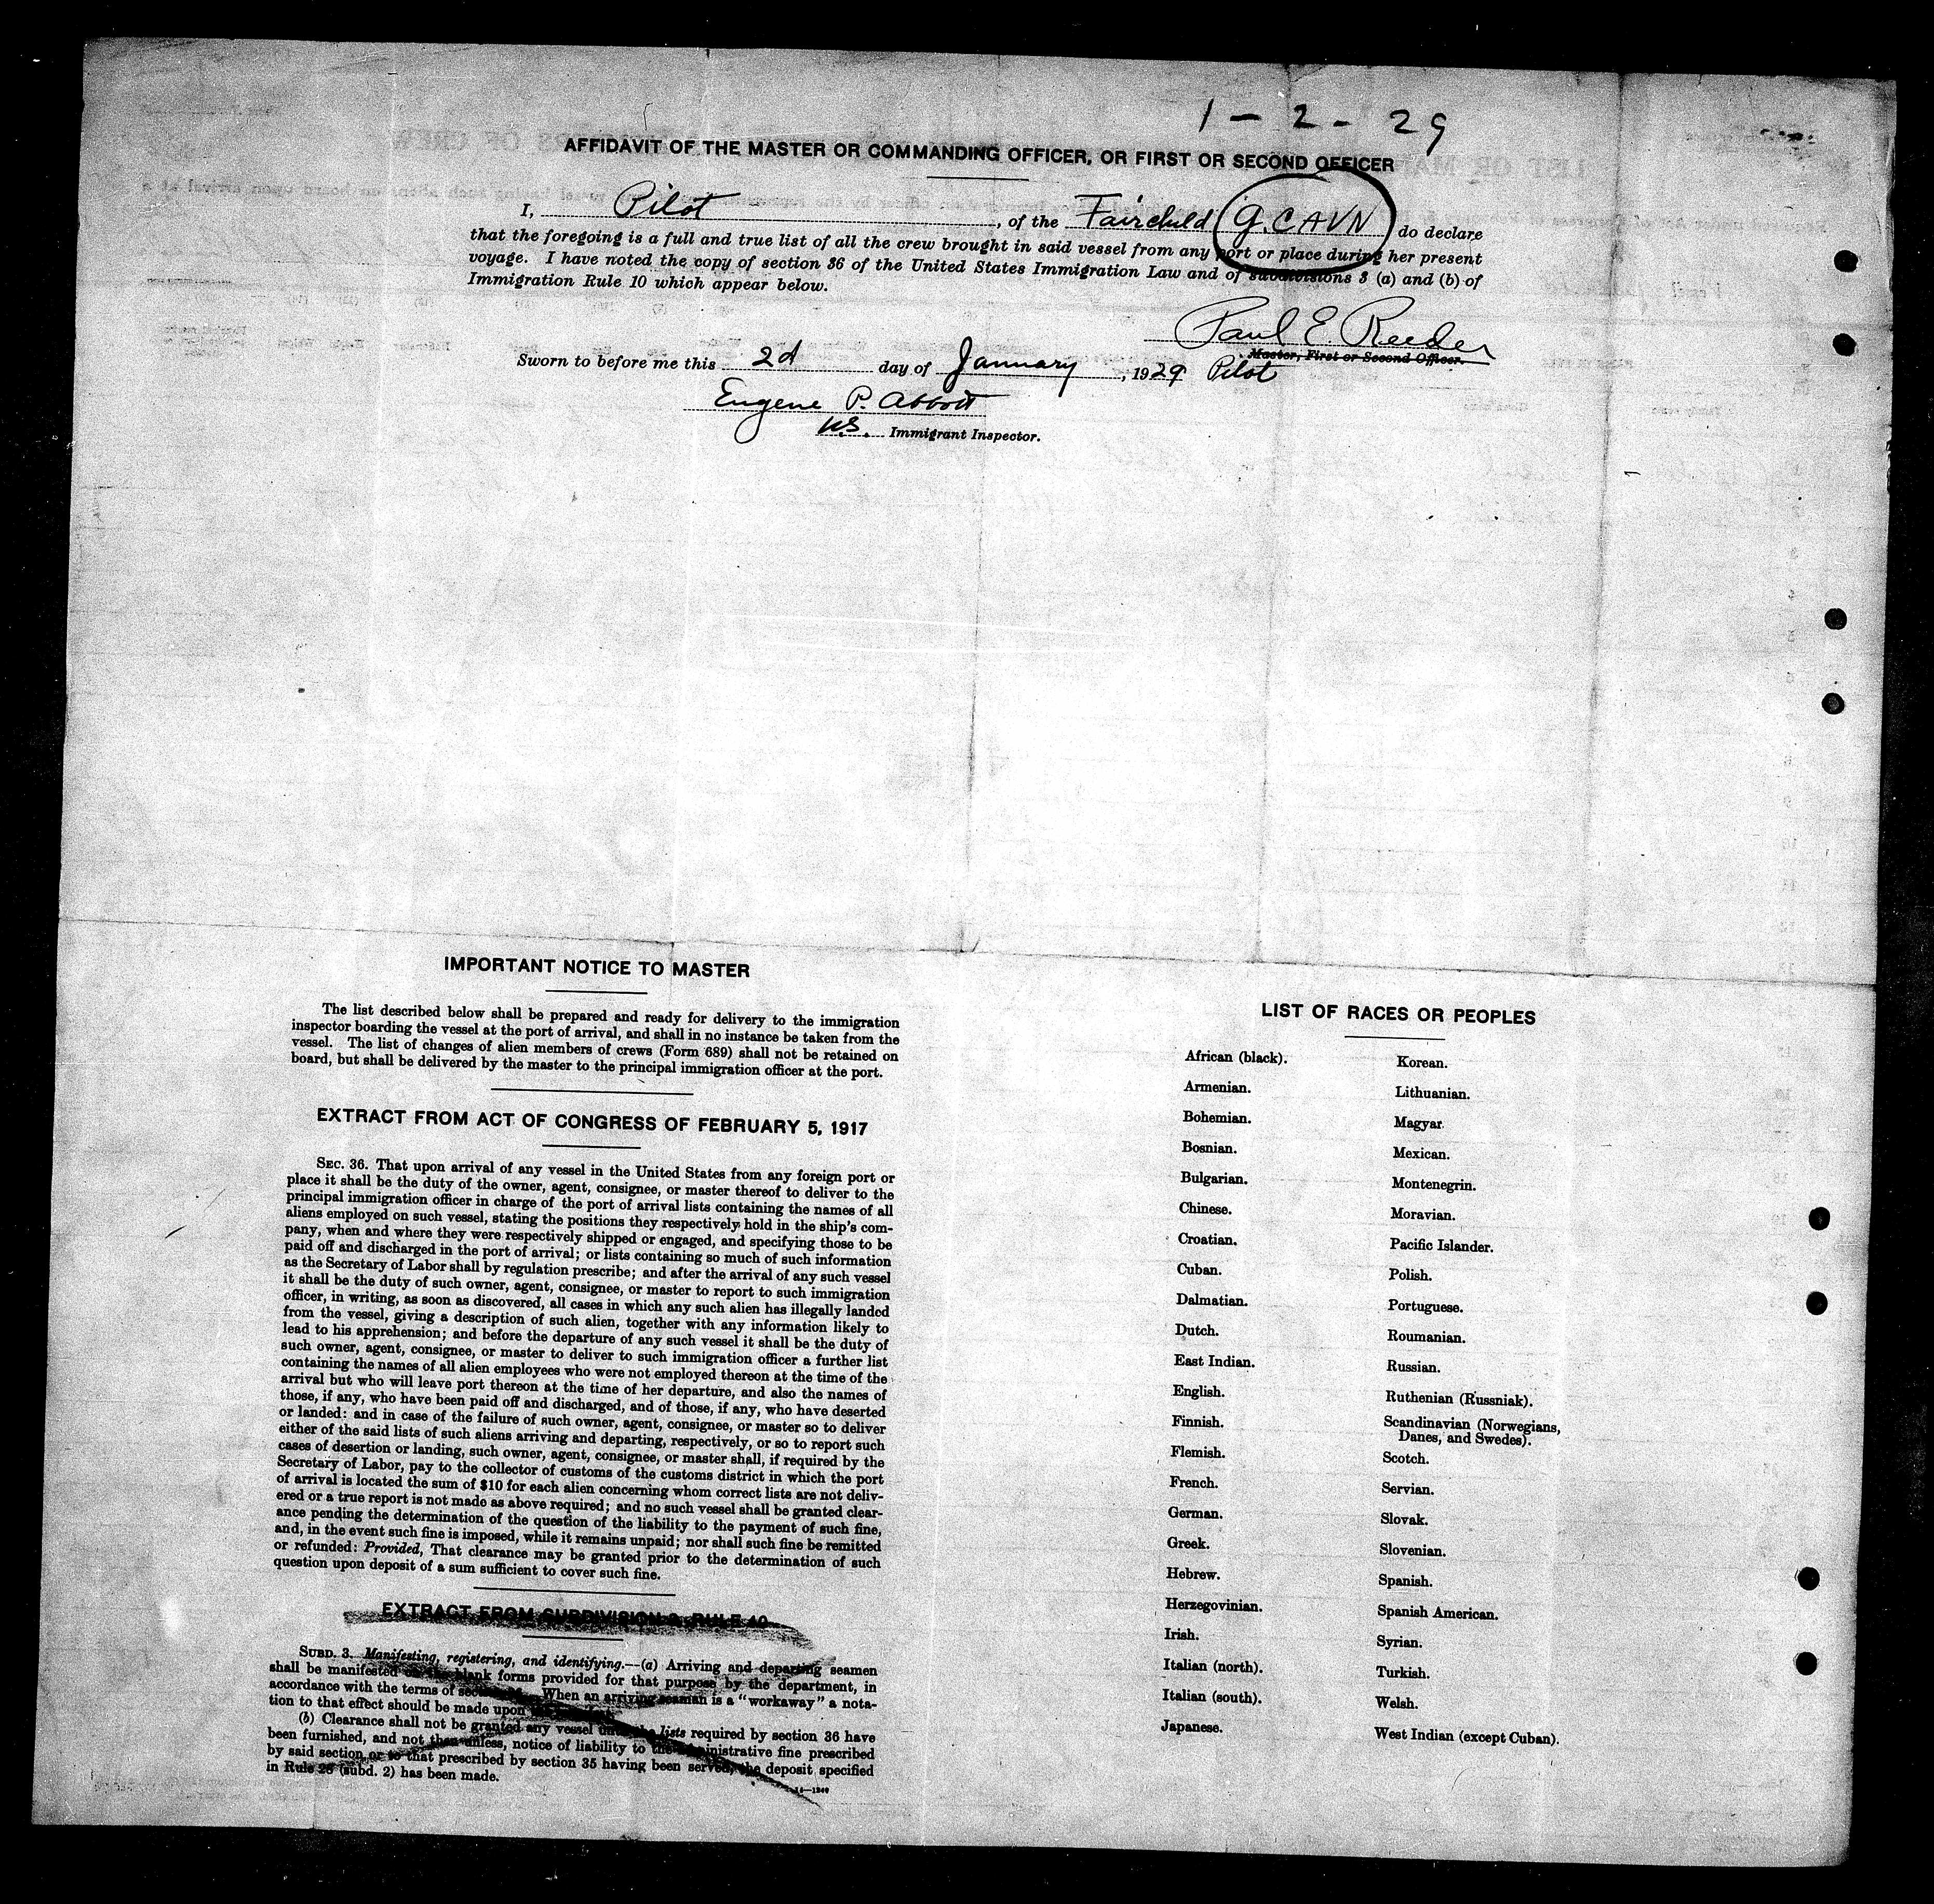 1 - 2 - 29
AFFIDAVIT OF THE MASTER OR COMMANDING OFFICER, OR FIRST OR SECOND OFFICER
I, Pilot, of the Fairchild G. CAVN do declare
that the foregoing is a full and true list of all the crew brought in said vessel from any port or place during her present
voyage. I have noted the copy of section 36 of the United States Immigration Law and of subdivisions 3 (a) and (b) of
Immigration Rule 10 which appear below.
Paul E. Reeder
Master, First or Second Officer.
Sworn to before me this 2d day of January, 1929 Pilot
Eugene P. Abbott
U.S. Immigrant Inspector.
IMPORTANT NOTICE TO MASTER
The list described below shall be prepared and ready for delivery to the immigration
inspector boarding the vessel at the port of arrival, and shall in no instance be taken from the
vessel. The list of changes of alien members of crews (Form 689) shall not be retained on
board, but shall be delivered by the master to the principal immigration officer at the port.
EXTRACT FROM ACT OF CONGRESS OF FEBRUARY 5, 1917
SEC. 36. That upon arrival of any vessel in the United States from any foreign port or
place it shall be the duty of the owner, agent, consignee, or master thereof to deliver to the
principal immigration officer in charge of the port of arrival lists containing the names of all
aliens employed on such vessel, stating the positions they respectively hold in the ship's com-
pany, when and where they were respectively shipped or engaged, and specifying those to be
paid off and discharged in the port of arrival; or lists containing so much of such information
as the Secretary of Labor shall by regulation prescribe; and after the arrival of any such vessel
it shall be the duty of such owner, agent, consignee, or master to report to such immigration
officer, in writing, as soon as discovered, all cases in which any such alien has illegally landed
from the vessel, giving a description of such alien, together with any information likely to
lead to his apprehension; and before the departure of any such vessel it shall be the duty of
such owner, agent, consignee, or master to deliver to such immigration officer a further list
containing the names of all alien employees who were not employed thereon at the time of the
arrival but who will leave port thereon at the time of her departure, and also the names of
those, if any, who have been paid off and discharged, and of those, if any, who have deserted
or landed: and in case of the failure of such owner, agent, consignee, or master so to deliver
either of the said lists of such aliens arriving and departing, respectively, or so to report such
cases of desertion or landing, such owner, agent, consignee, or master shall, if required by the
Secretary of Labor, pay to the collector of customs of the customs district in which the port
of arrival is located the sum of $10 for each alien concerning whom correct lists are not deliv-
ered or a true report is not made as above required; and no such vessel shall be granted clear-
ance pending the determination of the question of the liability to the payment of such fine,
and, in the event such fine is imposed, while it remains unpaid; nor shall such fine be remitted
or refunded: Provided, That clearance may be granted prior to the determination of such
question upon deposit of a sum sufficient to cover such fine.
EXTRACT FROM SUBDIVISION 3, RULE 10
SUBD. 3. Manifesting, registering, and identifying.—(a) Arriving and departing seamen
shall be manifested on the blank forms provided for that purpose by the department, in
accordance with the terms of When an arriving seaman is a "workaway" a nota-
tion to that effect should be made upon
(b) Clearance shall not be granted any vessel until the lists required by section 36 have
been furnished, and not then unless, notice of liability to the administrative fine prescribed
by said section or to that prescribed by section 35 having been served, the deposit specified
in Rule 28 (subd. 2) has been made.
LIST OF RACES OR PEOPLES
African (black).
Armenian.
Bohemian.
Bosnian.
Bulgarian.
Chinese.
Croatian.
Cuban.
Dalmatian.
Dutch.
East Indian.
English.
Finnish.
Flemish.
French.
German.
Greek.
Hebrew.
Herzegovinian.
Irish.
Italian (north).
Italian (south).
Japanese.
Korean.
Lithuanian.
Magyar.
Mexican.
Montenegrin.
Moravian.
Pacific Islander.
Polish.
Portuguese.
Roumanian.
Russian.
Ruthenian (Russniak).
Scandinavian (Norwegians,
Danes, and Swedes).
Scotch.
Servian.
Slovak.
Slovenian.
Spanish.
Spanish American.
Syrian.
Turkish.
Welsh.
West Indian (except Cuban).